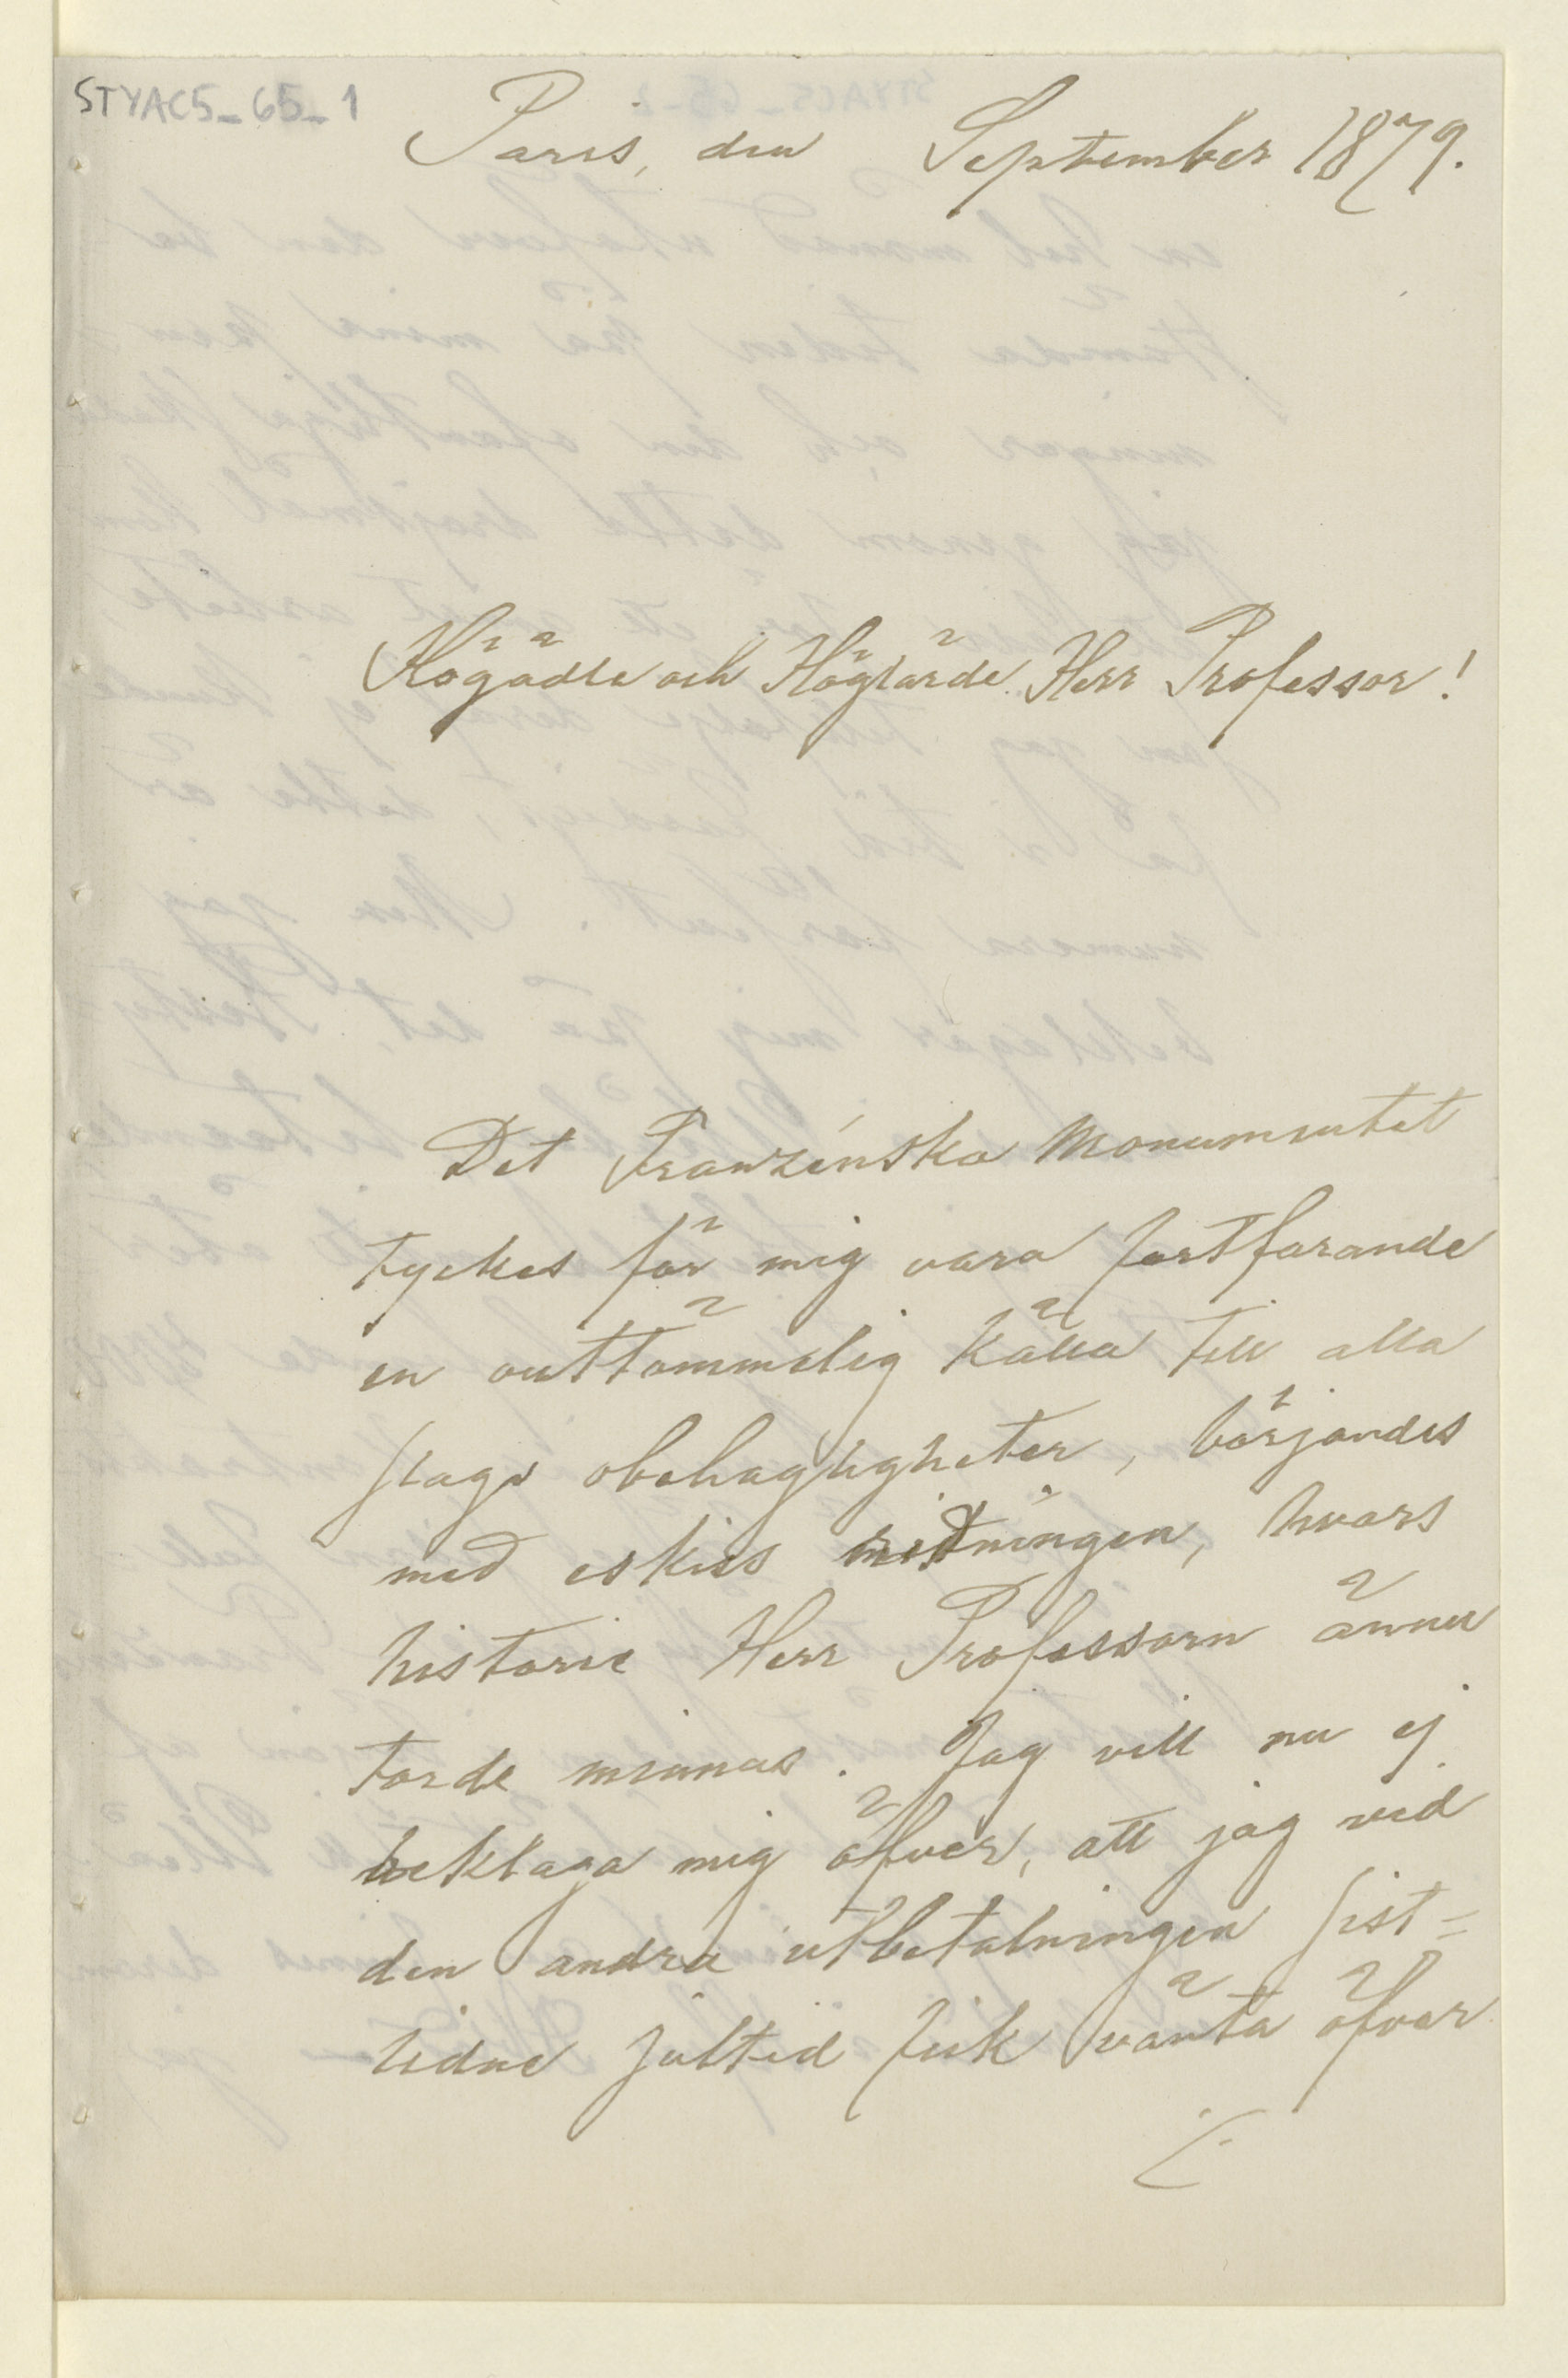 STYAC5_65_1
Paris, den September 1879.
Högädle och Höglärde Herr Professor!
Det Franzénska Monumentet
tyckes för mig vara fortfarande
en outtömmelig källa till alla
slags obehagligheter, börjandes
med eskiss ridningen, hvars
historie Herr Professorn ännu
torde minnas. Jag vill nu ej
beklaga mig öfver, att jag ved
den andra utbetalningen sist=
lidne jultid fick vänta öfver